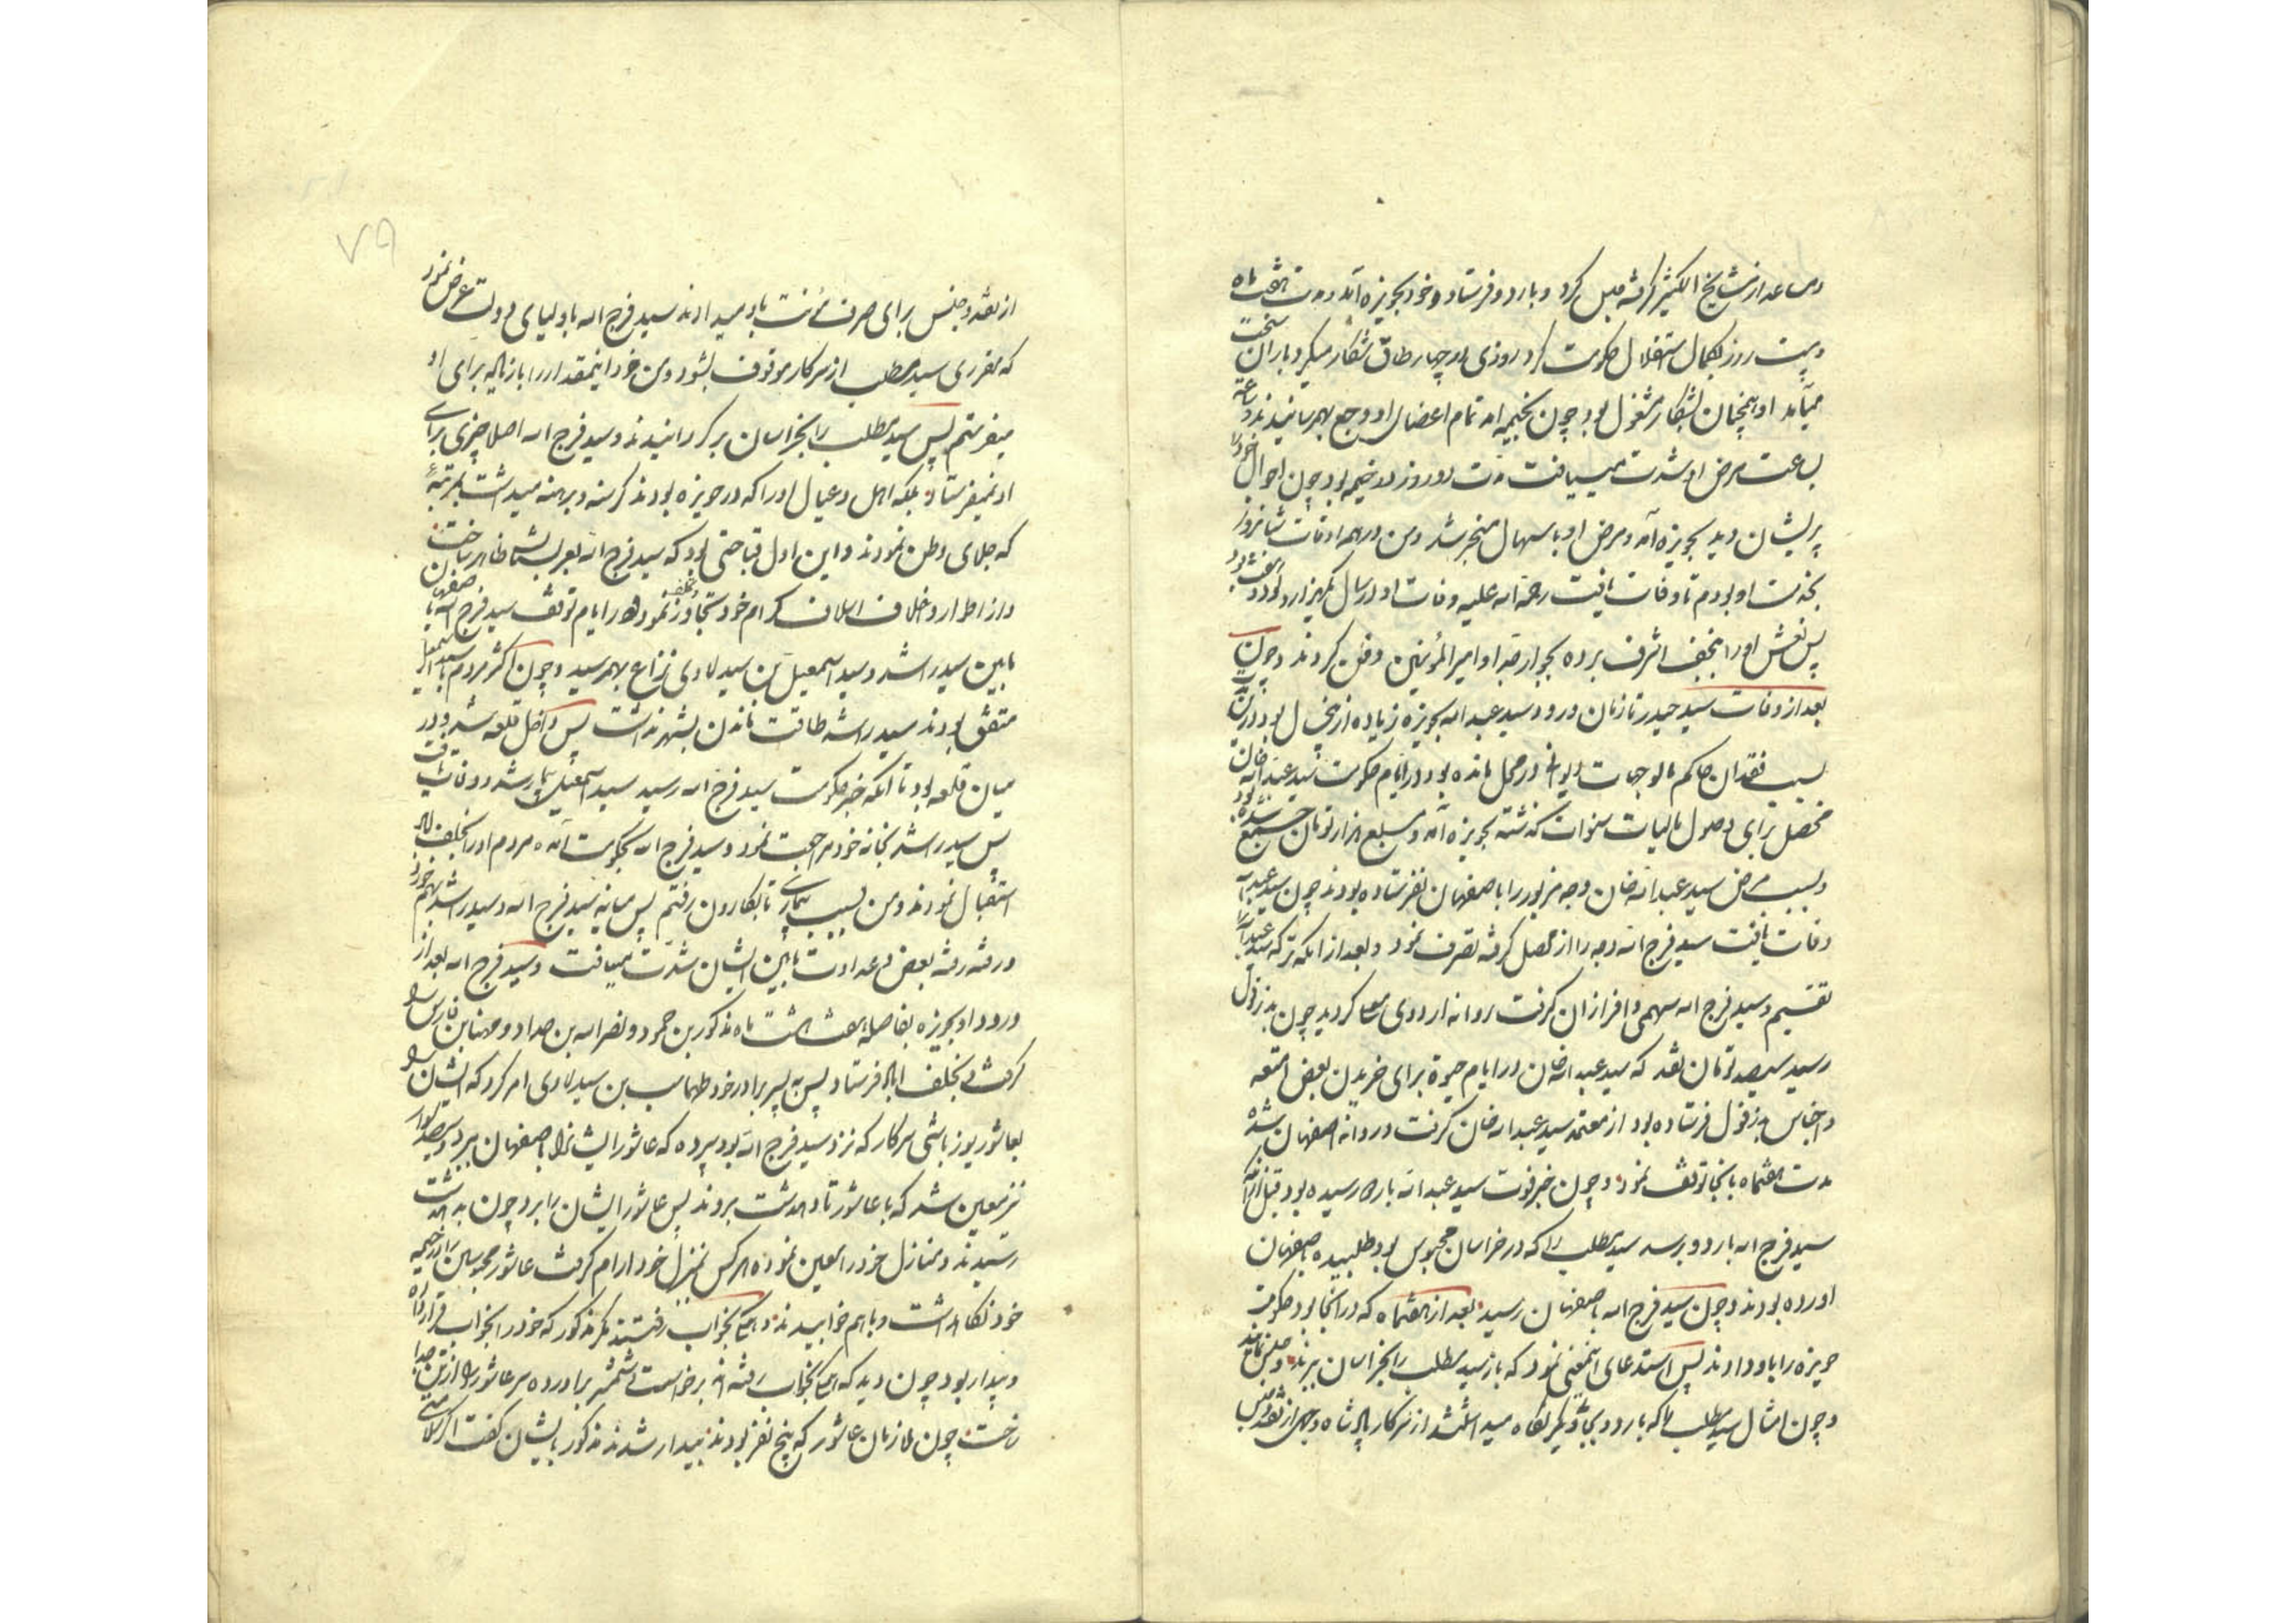 و بیست روز بکمال استقلال حکومت کرد روزی در چهار طاق شکار میکرد و باران سخت
میآمد او همچنان بشکار مشغول بود چون بخیمه آمد تمام اعضای او وجع بهم رسانیدند و ساعة
بساعت مرض او شدت مییافت مدت دو روز در خیمه بود چون احوال خود را
پریشان دید بحویزه آمد و مرض او باسهال منجر شد و من در همه اوقات شبانروز
بخدمت او بودم تا وفات یافت رحمة الله علیه وفات او در سال یکهزار و نود و هفت بود
پس نعش او را بنجف اشرف برده بجوار جد او امیر المؤمنین دفن کردند و چون
بعد از وفات سید حیدر تا زمان ورود سید عبدالله بحویزه زیاده از پنج سال بود در این مدت
بسبب فقدان حاکم مالوجهات دیوانی در محل مانده بود در ایام حکومت سید عبدالله خان
محصل برای وصول مالیات سنوات گذشته بحویزه آمد و مبلغ هزار تومان جمع شده بود
و بسبب مرض سید عبدالله خان وجه مزبور را باصفهان نفرستاده بودند چون سید عبدالله
وفات یافت سید فرج الله وجه را از محصل گرفته تصرف نمود و بعد از آنکه ترکه سید عبدالله را
تقسیم و سید فرج الله سهمی وافر از آن گرفت روانه اردوی معلا گردید چون بدزفول
رسید سیصد تومان نقد که سید عبدالله خان در ایام حیوة برای خریدن بعض امتعه
و اجناس بدزفول فرستاده بود از معتمد سید عبدالله خان گرفت و روانه اصفهان شده
مدت هفتماه بآنجا توقف نمود و چون خبر فوت سید عبدالله باردو رسیده بود قبل از آنکه
سید فرج الله باردو برسد سید مطلب را که در خراسان محبوس بود طلبیده باصفهان
آورده بودند و چون سید فرج الله باصفهان رسید بعد از هفتماه که در آنجا بود حکومت
حویزه را باو دادند پس استدعای اینمعنی نمود که باز سید مطلب را بخراسان برند و حبس نمایند
و چون امثال سید مطلب را که باردو یا بجای دیگر نگاه میداشتند از سرکار پادشاه وجهی از نقد و جنس
از نقد و جنس برای صرف مؤنت باو میدادند سید فرج الله باولیای دولت عرض نمود
که مقرری سید مطلب از سرکار موقوف بشود و من خود اینمقدار را با زیاده برای او
میفرستم پس سید مطلب را بخراسان برگردانیدند و سید فرج الله اصلا چیزی برای
او نمیفرستاد بلکه اهل و عیال او را که در حویزه بودند گرسنه و برهنه میداشت بمرتبه
که جلای وطن نمودند و این اول قباحتی بود که سید فرج الله بعربستان ظاهر ساخت
و از اطوار و اخلاق اسلاف کرام خود تجاوز نمود و در ایام توقف سید فرج الله باصفهان
مابین سید راشد و سید اسمعیل بن سید هادی نزاع بهم رسید و چون اکثر مردم با سید اسمعیل
متفق بودند سید راشد طاقت ماندن بشهر نداشت پس داخل قلعه شد و در
میان قلعه بود تا آنکه خبر حکومت سید فرج الله رسید سید اسمعیل بیمار شد و وفات یافت
پس سید راشد بخانه خود مراجعت نمود و سید فرج الله بحکومت آمده مردم او را بخلف اباد
استقبال نمودند و من بسبب بیماری تا بکارون رفتم پس میانه سید فرج الله و سید راشد بهم خورد
و رفته رفته بغض و عداوت مابین ایشان شدت مییافت و سید فرج الله بعد از
ورود او بحویزه بفاصله هفت هشت ماه مذکور بن حمود و نصرالله بن صداد و مهنا بن فارس را
گرفته بخلف اباد فرستاد پس به پسر برادر خود طهماسب بن سید هادی امر کرد که ایشان را
بعاشور یوزباشی سرکار که نزد سید فرج الله بود سپرده که عاشور ایشانرا باصفهان ببرد و سیصد سوار
نیز معین شد که با عاشور تا دهدشت بروند پس عاشور ایشان را برد چون بدهدشت
رسیدند و منازل خود را معین نموده هر کس بمنزل خود آرام گرفت عاشور محبوسین را در خیمه
خود نگاهداشت و با هم خوابیدند و همه بخواب رفتند مگر مذکور که خود را بخواب قرار داده
و بیدار بود چون دید که همه بخواب رفته اند برخاست و شمشیر برآورده سر عاشور را از تن جدا
ساخت چون ملازمان عاشور که پنج نفر بودند بیدار شدند مذکور بایشان گفت اگر سلامتی